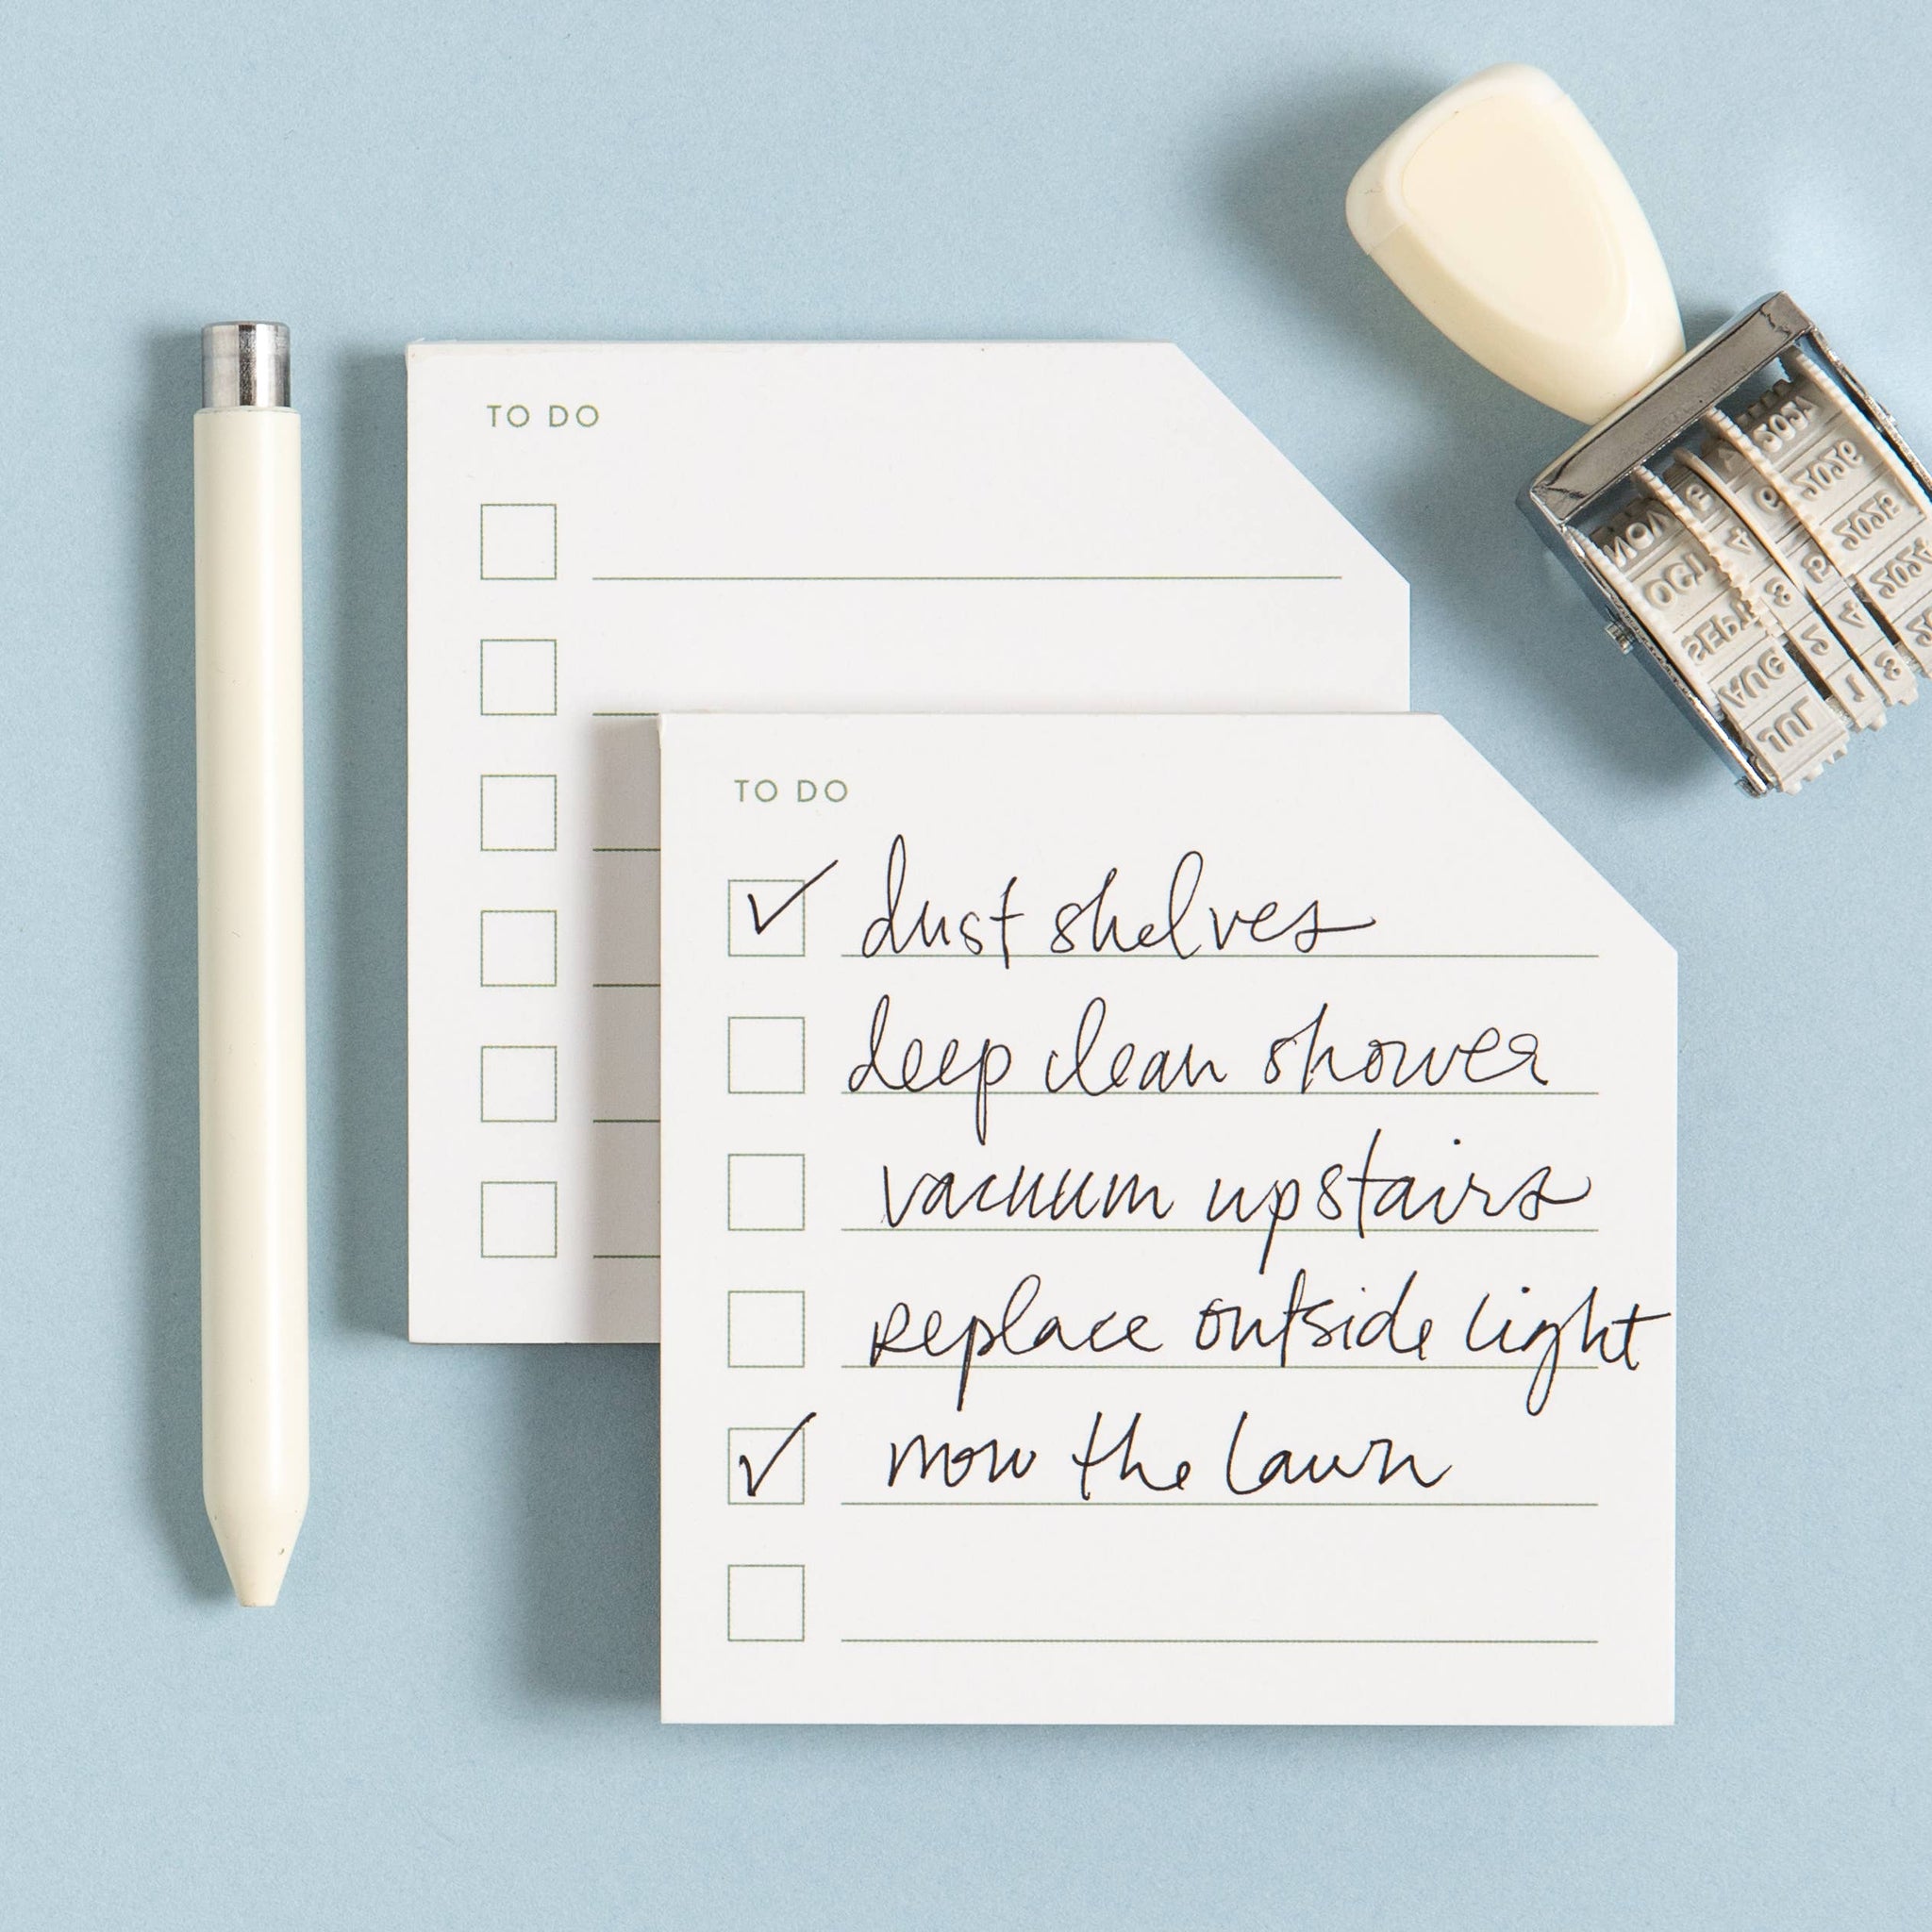 TO DO
TO DO
dust shelves
deep clean shower
vacuum upstairs
replace outside light
mow the lawn
NOV
OCT
SEPT
AUG
JUL
4
3
2
1
6
5
4
3
2027
2026
2025
2024